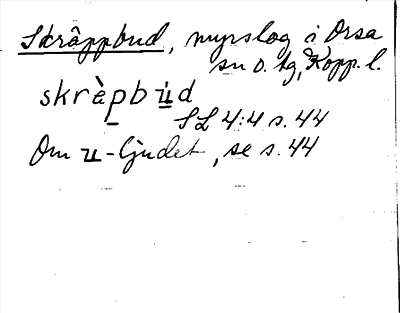 Skrâppbud, myrslog i Orsa
sn o. tg, Kopp. l.
skrèpbùd
SL 4:4 s. 44
Om u-ljudet, se s. 44